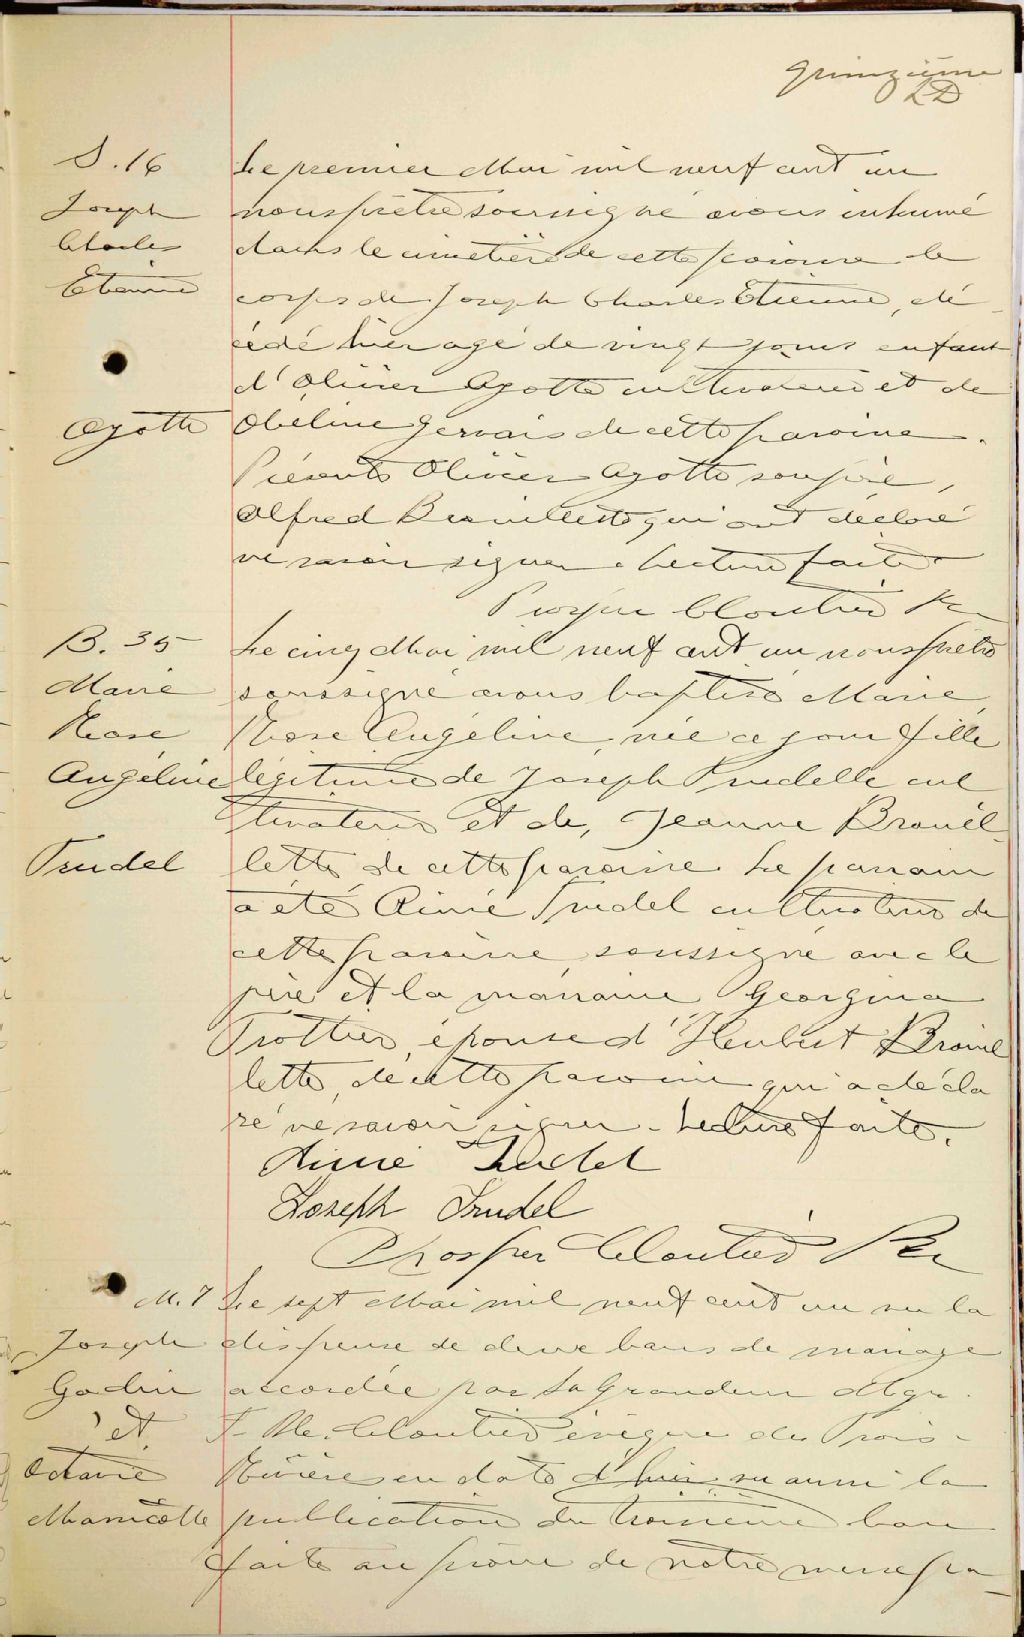 quinzième
LD
S. 16
Joseph
Charles
Etienne
Ayotte
Le premier Mai mil neuf cent un
nous prêtre soussigné avons inhumé
dans le cimetière de cette paroisse le
corps de Joseph Charles Etienne, dé
cédé hier agé de vingt jours enfant
d'Olivier Ayotte cultivateur et de
Obeline Gervais de cette paroisse.
Présents Olivier Ayotte son père,
Alfred Brouillette qui ont déclaré
ne savoir signer. Lecture faite.
Prosper Cloutier Ptre
B. 35
Marie
Rose
Angéline
Trudel
Le cinq Mai mil neuf cent un nous prêtre
soussigné avons baptisé Marie
Rose Angéline, née ce jour fille
légitime de Joseph Trudelle cul
tivateur et de, Jeanne Brouil
lette, de cette paroisse. Le parrain
a été Aimé Trudel cultivateur de
cette paroisse, soussigné avec le
père et la marraine Georgina
Trottier, épouse d'Heubert Brouil
lette, de cette paroisse qui a décla
ré ne savoir signer. Lecture faite.
Aimé Trudel
Joseph Trudel
Prosper Cloutier Ptre
M. 7
Joseph
Godin
et
Octavie
Marcotte
Le sept Mai mil neuf cent un vu la
dispense de deux bans de mariage
accordée par Sa Grandeur Mgr.
F. X. Cloutier évêque des Trois-
Rivières en date d'hier vu aussi la
publication du troisième ban
faite au prône de notre messe pa